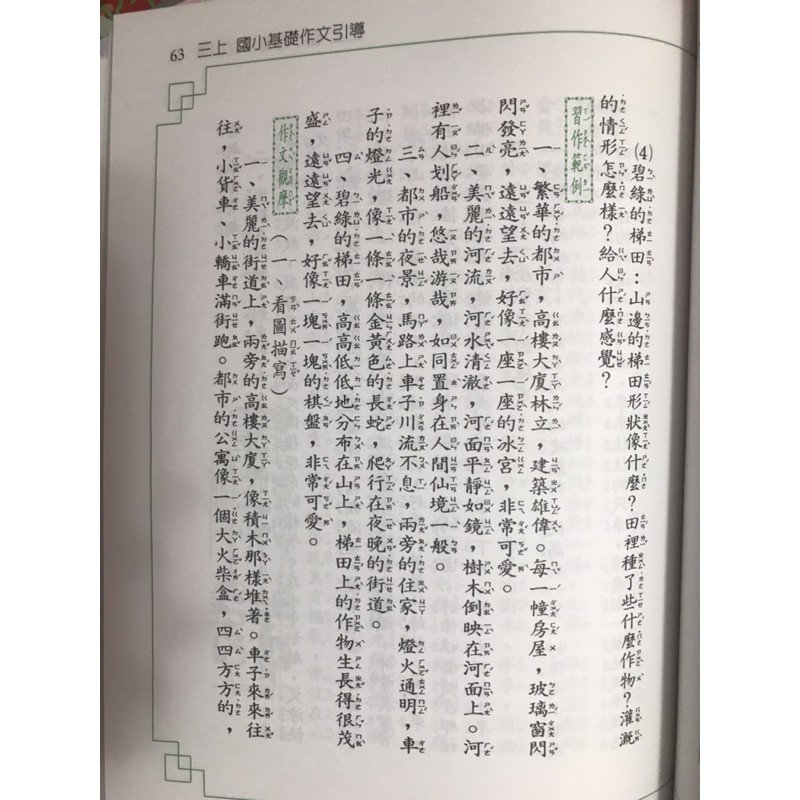 63 三上 國小基礎作文引導
(4)碧綠的梯田：山邊的梯田形狀像什麼？田裡種了些什麼作物？灌溉
的情形怎麼樣？給人什麼感覺？
習作範例
一、繁華的都市，高樓大廈林立，建築雄偉。每一幢房屋，玻璃窗閃
閃發亮，遠遠望去，好像一座一座的冰宮，非常可愛。
二、美麗的河流，河水清澈，河面平靜如鏡，樹木倒映在河面上。河
裡有人划船，悠哉游哉，如同置身在人間仙境一般。
三、都市的夜景，馬路上車子川流不息，兩旁的住家，燈火通明，車
子的燈光，像一條一條金黃色的長蛇，爬行在夜晚的街道。
四、碧綠的梯田，高高低低地分布在山上，梯田上的作物生長得很茂
盛，遠遠望去，好像一塊一塊的棋盤，非常可愛。
作文觀摩（一、看圖描寫）
一、美麗的街道上，兩旁的高樓大廈，像積木那樣堆著。車子來來往
往，小貨車、小轎車滿街跑。都市的公寓像一個大火柴盒，四四方方的，